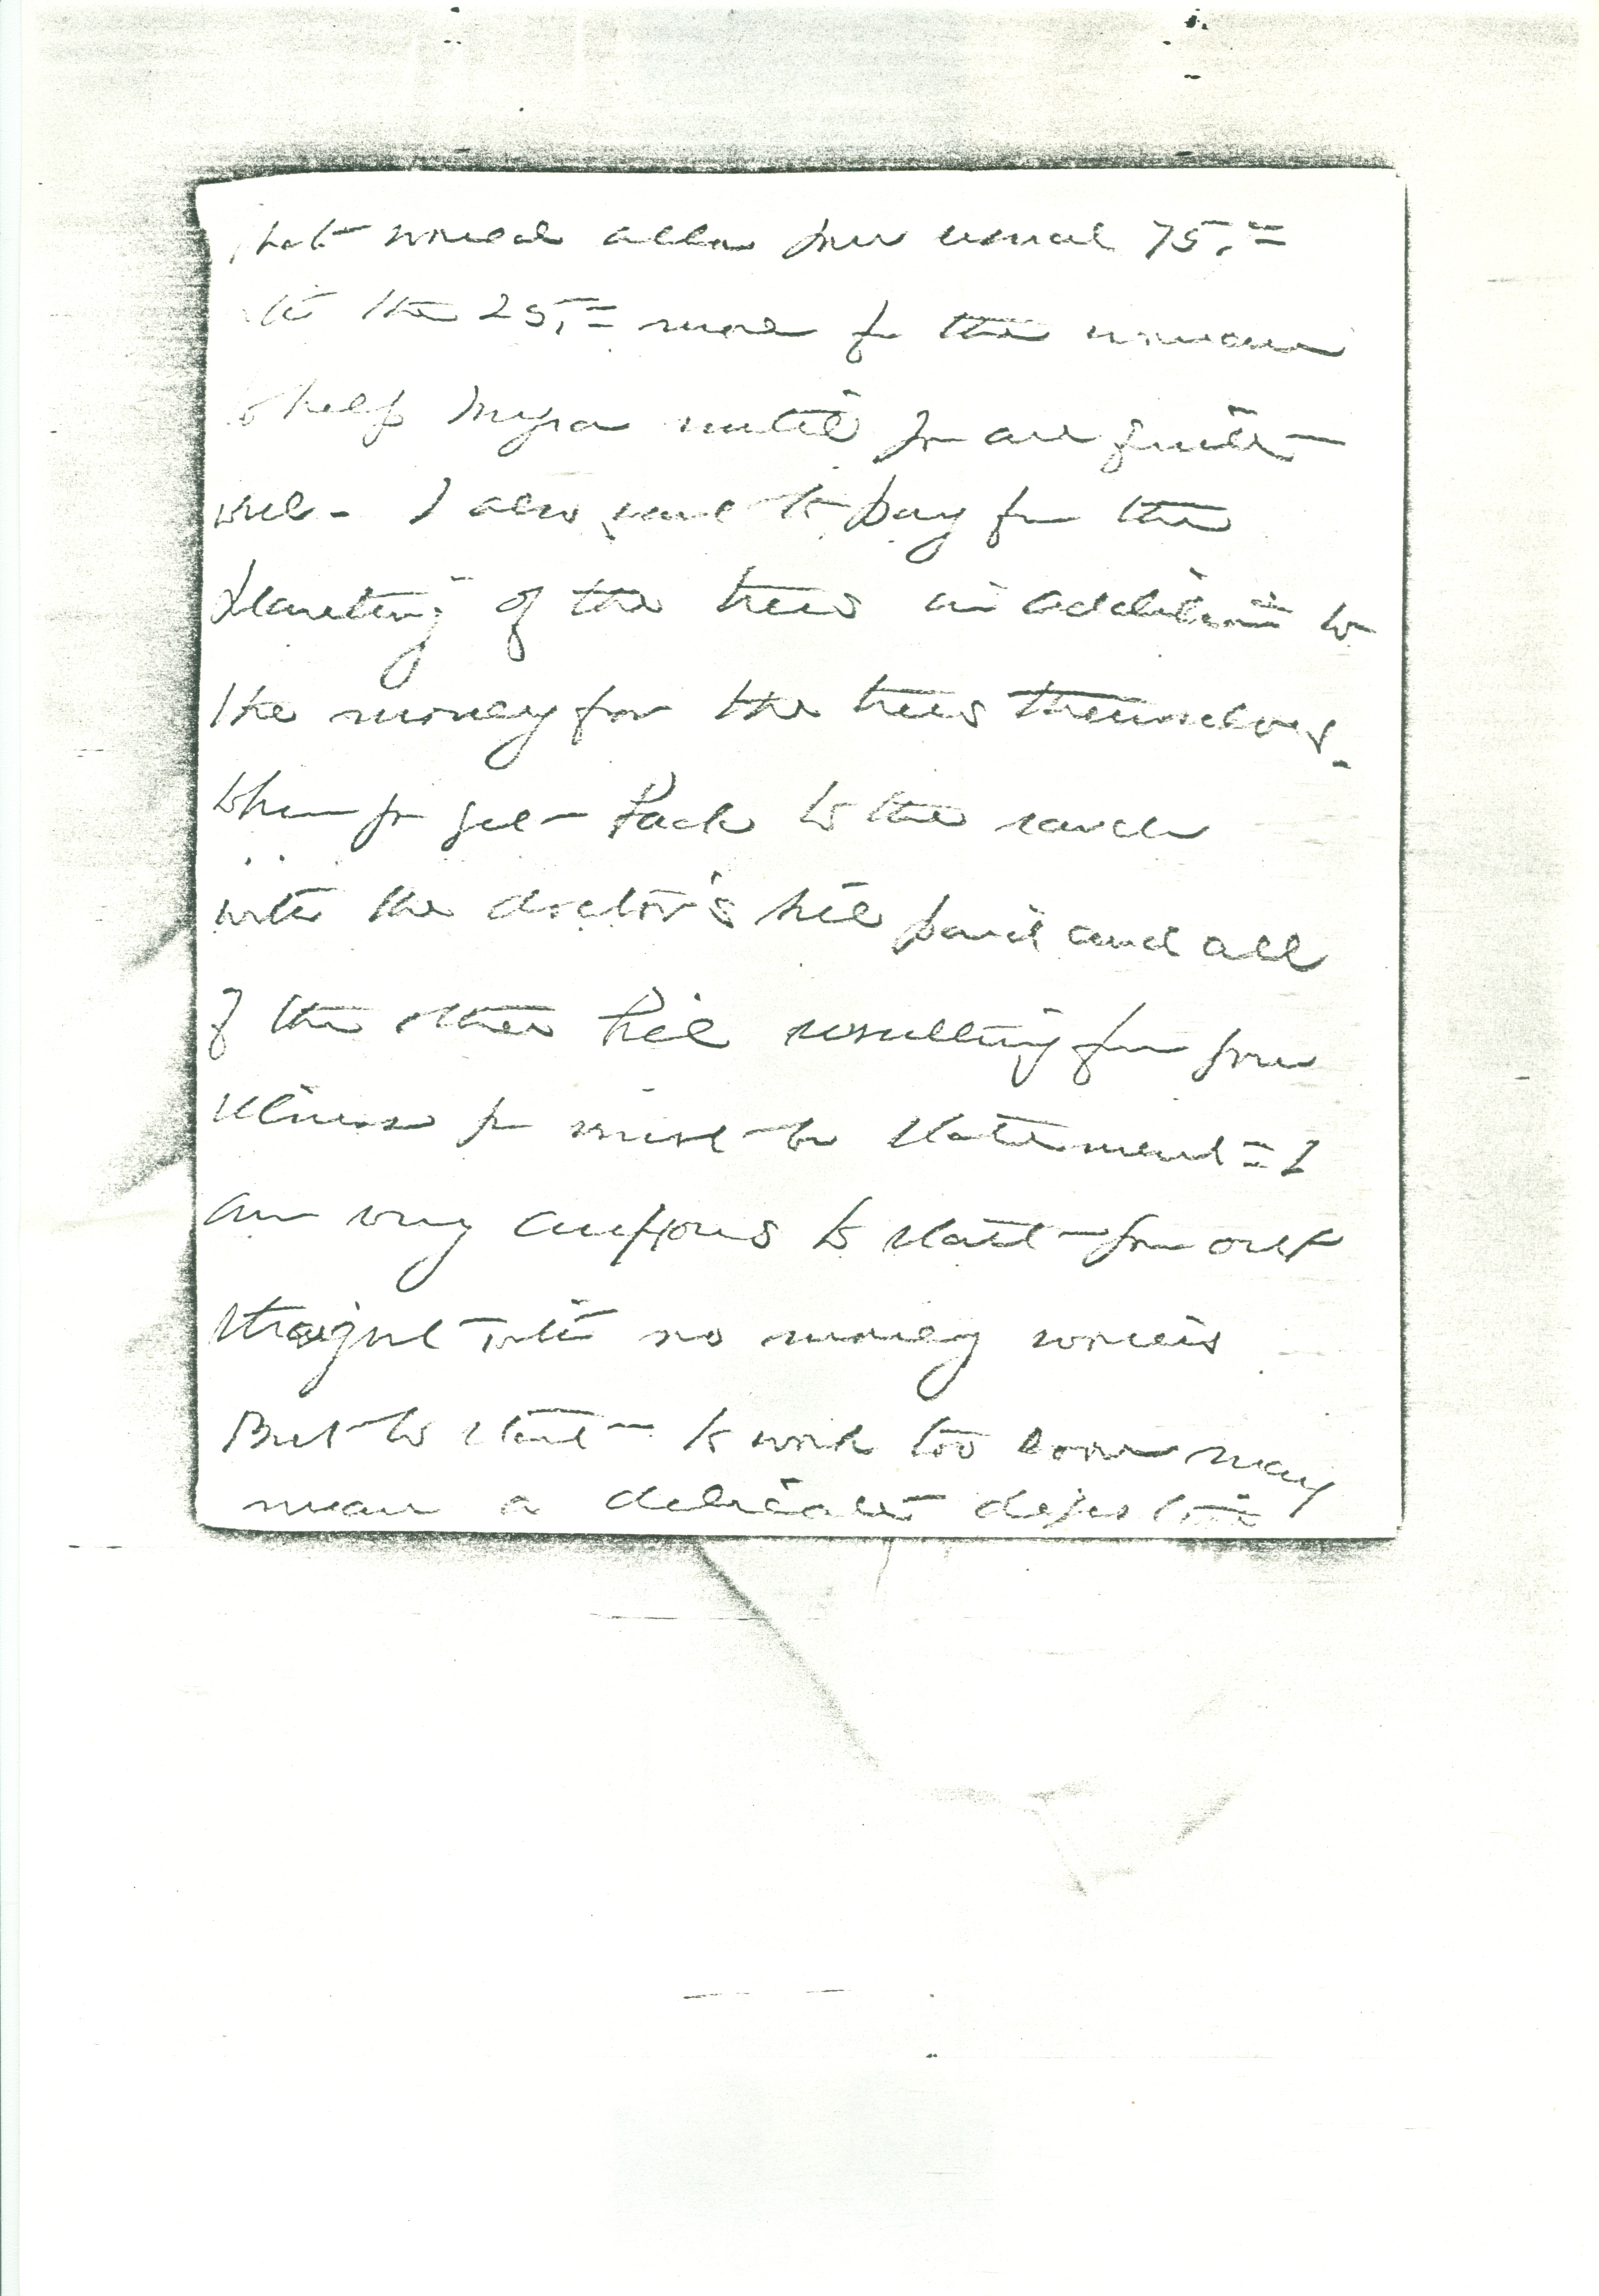 that would allow your usual 75.=
the 25.= more for the woman
to help Myra until you are quite
well - I also want to pay for the
planting of the trees in addition to
the money for the trees themselves.
When you get back to the ranch
with the doctor's bill paid and all
of the other bill resulting from your
illness you must be statement = I
am very anxious to start you out
straight with no money worries
But to start to work too soon may
mean a delicate